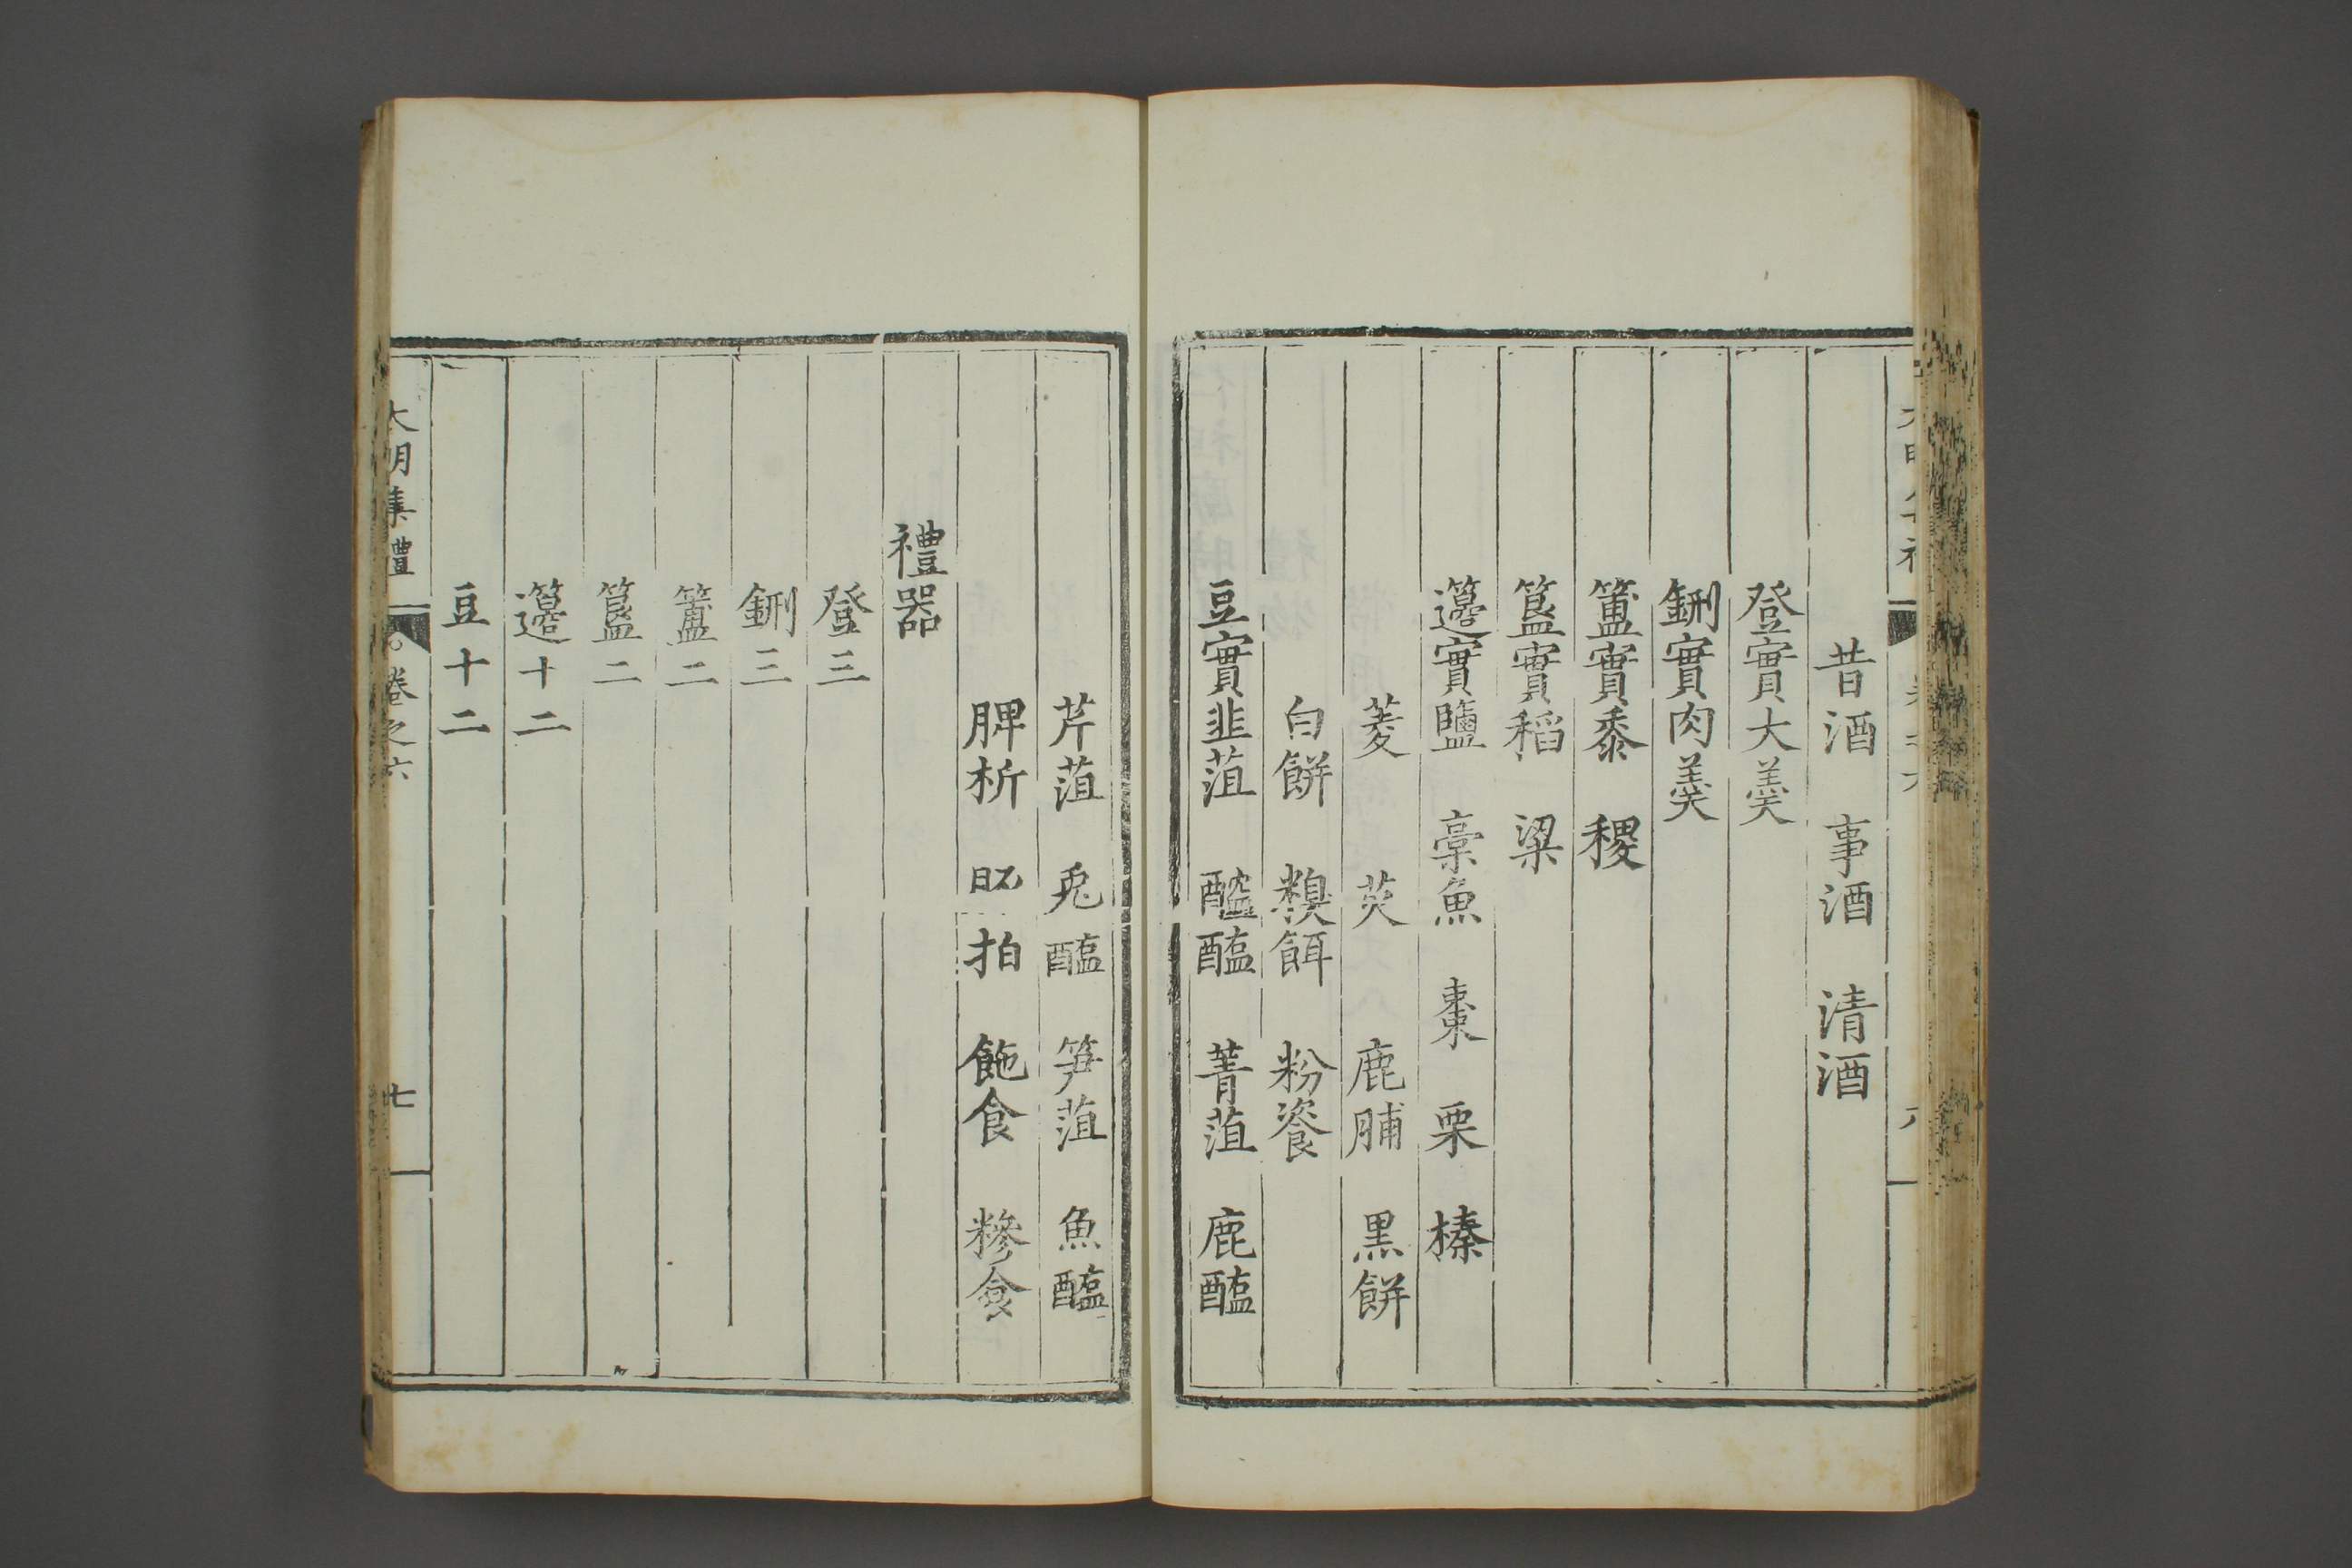 昔酒　事酒　清酒
登實大羮
鉶實肉羮
簠實黍　稷
簋實稻　梁
籩實鹽　槀魚　棗　栗　榛
菱　芡　鹿脯　黒餅
白餅　糗餌　粉餈
豆實韭菹　醓醢　菁菹　鹿醢
芹菹　兎醢　笋菹　魚醢
脾析　拍　飽食　糝食
禮器
登三
鉶三
簠二
簋二
籩十二
豆十二
大明集禮　卷之六　七